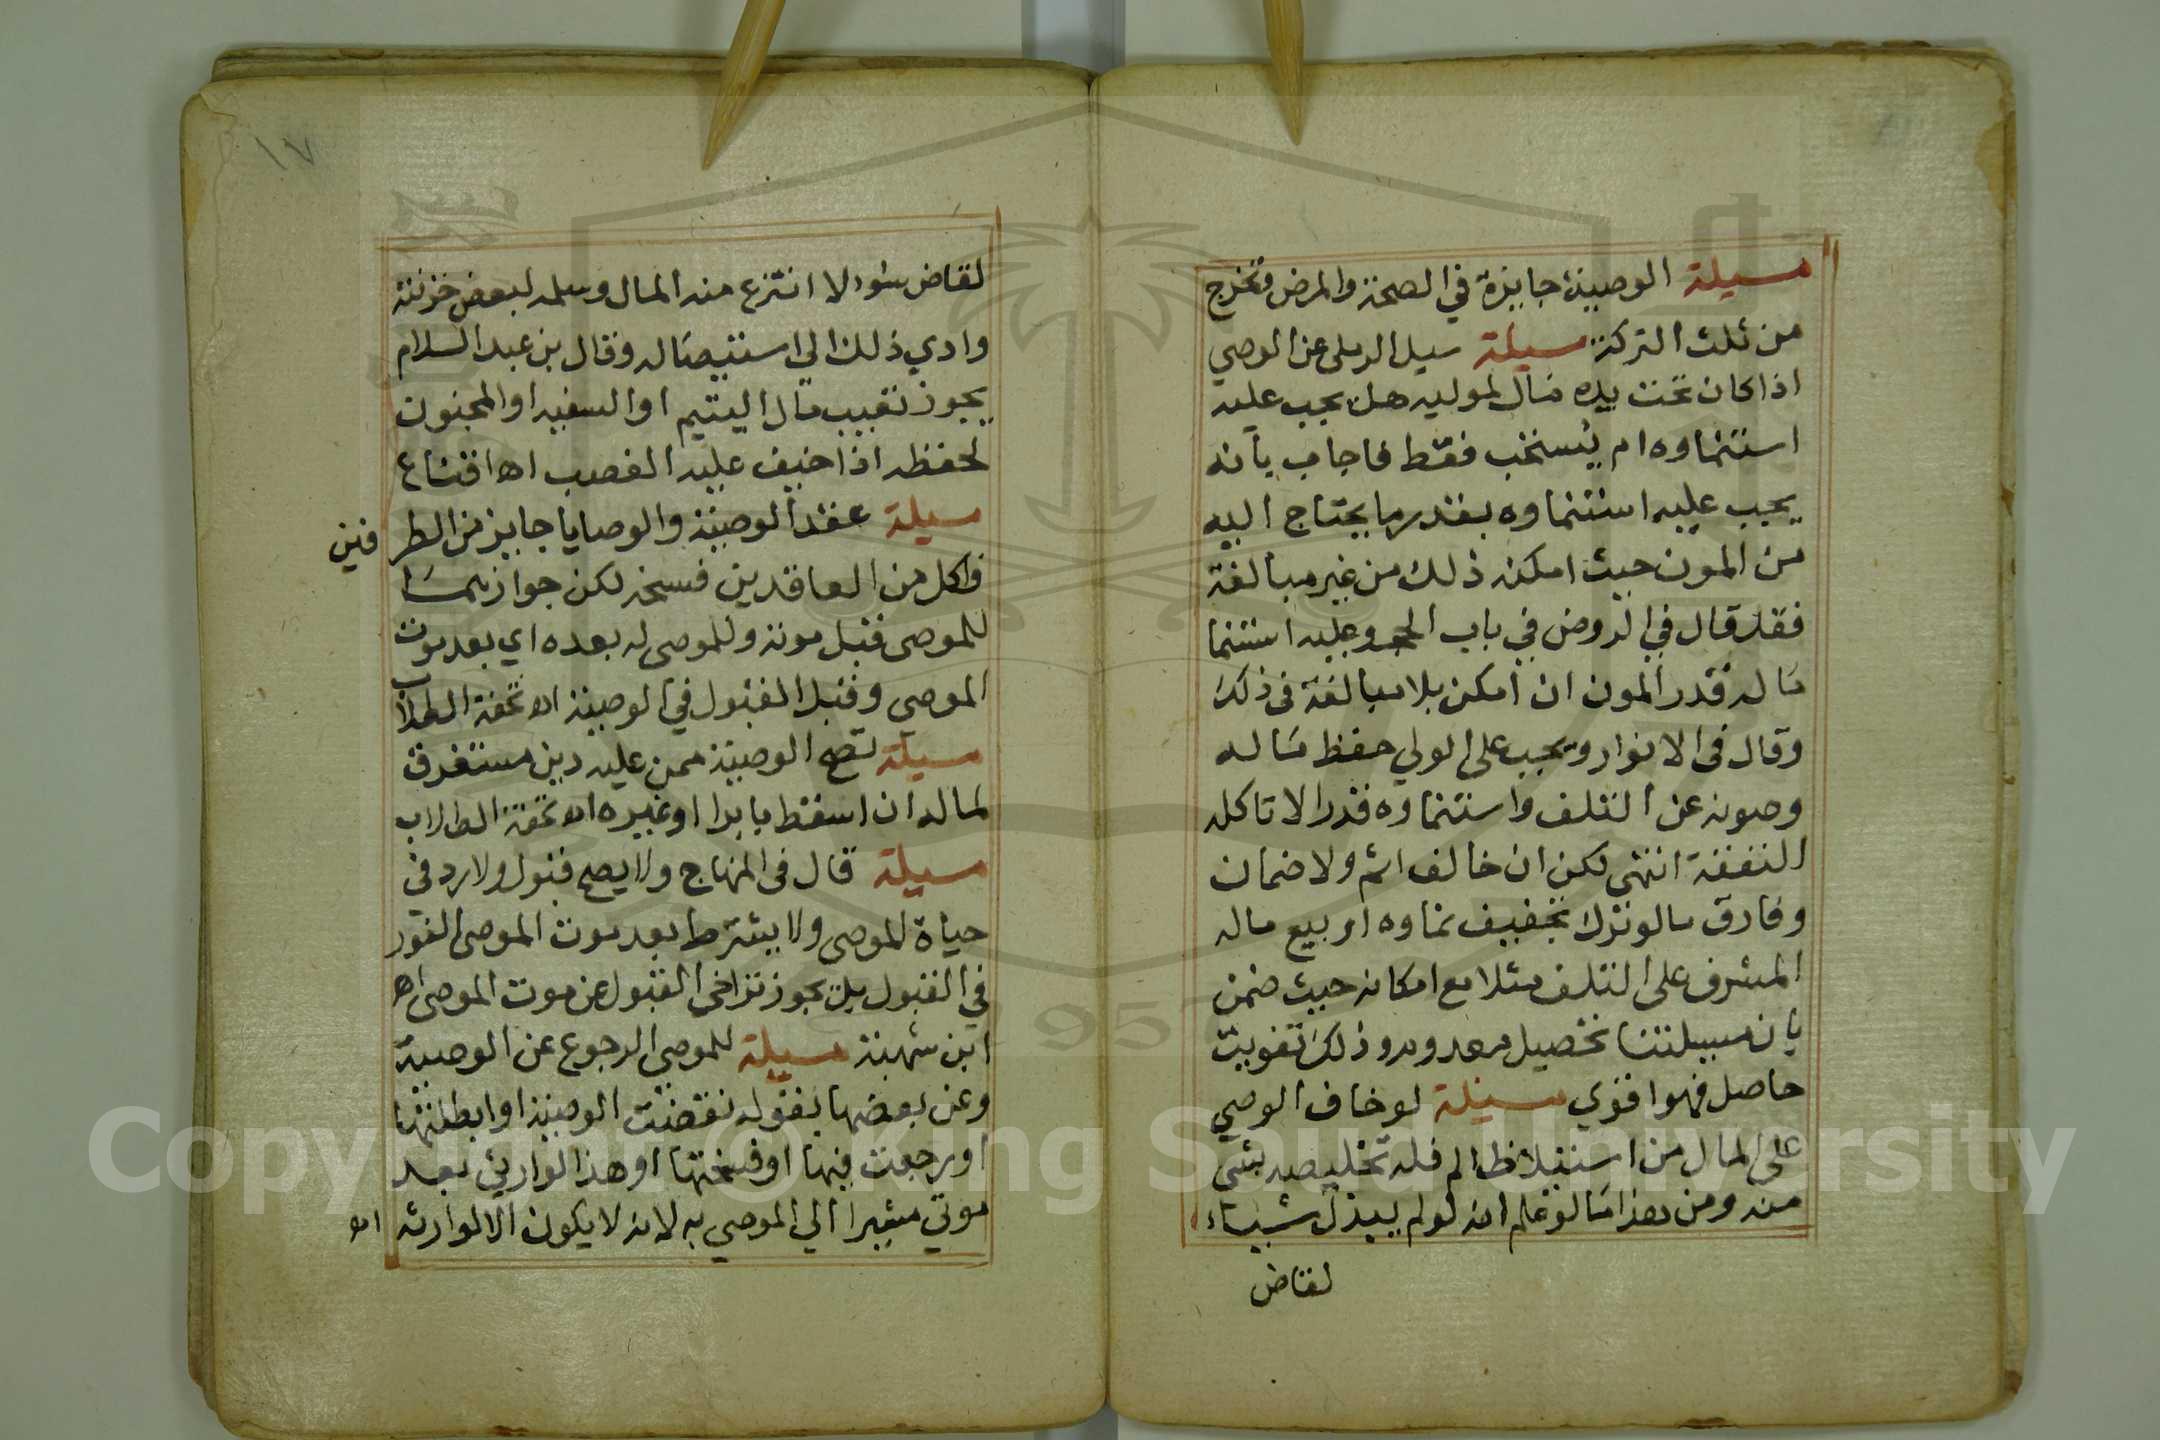 مسيلة الوصية جايزة في الصحة والمرض وتخرج
من ثلث التركة مسيلة سيل الرملي عن الوصي
اذا كان تحت يده مال لموليه هل يجب عليه
استنماوه ام يستحب فقط فاجاب بانه
يجب عليه استنماوه بقدر ما يحتاج اليه
من المون حيث امكنه ذلك من غير مبالغة
فقد قال في الروض في باب الحجر وعليه استنما
ماله قدر المون ان امكن بلا مبالغة في ذلك
وقال في الانوار ويجب على الولي حفظ ماله
وصونه عن التلف واستنماوه قدر الا تاكله
النفقة انتهى لكن ان خالف اثم ولا ضمان
وفارق ما لو ترك تجفيف نماوه او بيع ماله
المشرف على التلف مثلا مع امكانه حيث ضمن
بان مسيلتنا تحصيل معدوم وذلك تفويت
حاصل فهو اقوي مسيلة لو خاف الوصي
على المال من استيلا ظالم فله تخليصه بشي
منه ومن هذا ما لو علم انه لو لم يبذل شياء
لقاض
١٧
لقاض سوء الا انتزع منه المال وسلمه لبعض خزنته
وادي ذلك الى استيصاله وقال بن عبد السلام
يجوز تعييب مال اليتيم او السفيه او المجنون
لحفظه اذا خيف عليه الغصب اه اقناع
مسيلة عقد الوصية والوصايا جايز من الطر
فين
فلكل من العاقدين فسخه لكن جوازهما
للموصي قبل موته وللموصى له بعده اي بعد موت
الموصي وقبل القبول في الوصية اه تحفة الطلاب
مسيلة تصح الوصية ممن عليه دين مستغرق
لماله ان اسقط بابرا او غيره اه تحفة الطلاب
مسيلة قال في المنهاج ولا يصح قبول ولا رد في
حياة الموصي ولا يشترط بعد موت الموصى الفور
في القبول بل يجوز تراخى القبول عن موت الموصى اه
ابن شهبة مسيلة للموصي الرجوع عن الوصية
وعن بعضها بقوله نقضت الوصية او ابطلتها
او رجعت فيها او فسختها او هذا لوارثي بعد
موتي مشيرا الي الموصي به لانه لا يكون الا لوارثه اه
Copyright © King Saud University